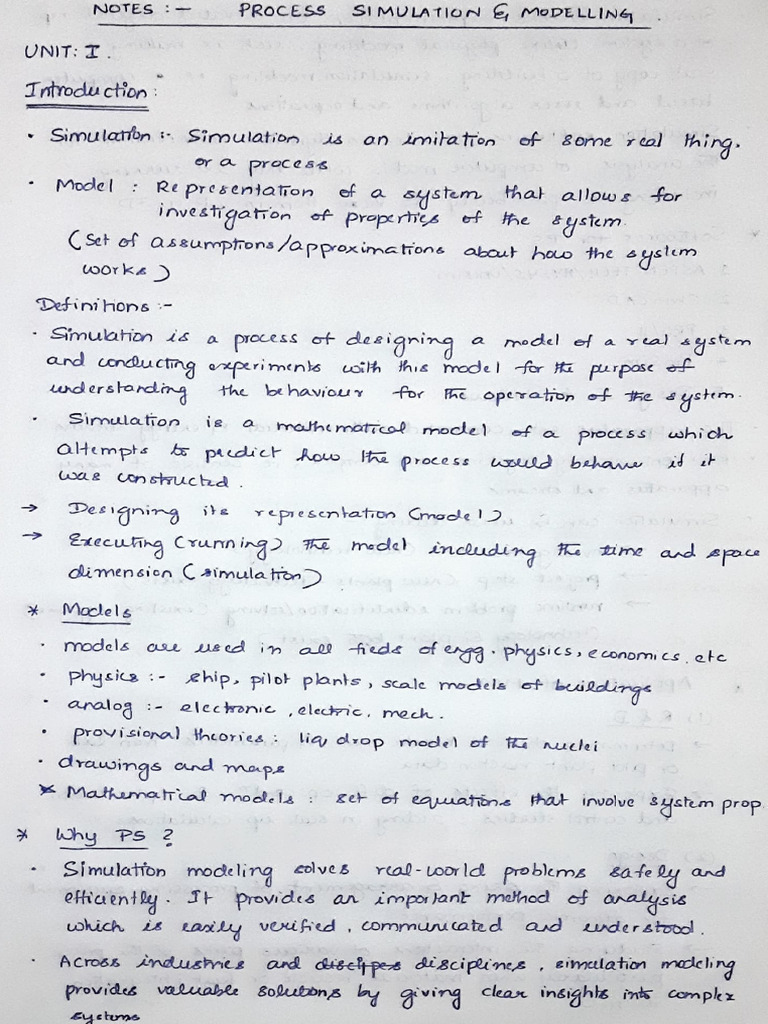 NOTES :- PROCESS SIMULATION & MODELLING
UNIT: I.
Introduction:
• Simulation :- Simulation is an imitation of some real thing.
or a process
• Model : Representation of a system that allows for
investigation of properties of the system.
(set of assumptions/approximations about how the system
works)
Definitions :-
• Simulation is a process of designing a model of a real system
and conducting experiments with this model for the purpose of
understanding the behaviour for the operation of the system.
• Simulation is a mathematical model of a process which
attempts to predict how the process would behave if it
was constructed.
→ Designing its representation (model)
→ Executing (running) the model including the time and space
dimension (simulation)
* Models
• models are used in all fieds of engg. physics, economics. etc
• physics :- ship, pilot plants, scale models of buildings
• analog :- electronic, electric, mech.
• provisional theories : liq drop model of the nuclei
• drawings and maps
* Mathematrical models : set of equations that involve system prop.
* Why PS ?
• Simulation modeling solves real-world problems safely and
efficiently. It provides an important method of analysis
which is easily verified, communicated and understood.
• Across industries and disciplines, simulation modeling
provides valuable solutions by giving clear insights into complex
systems